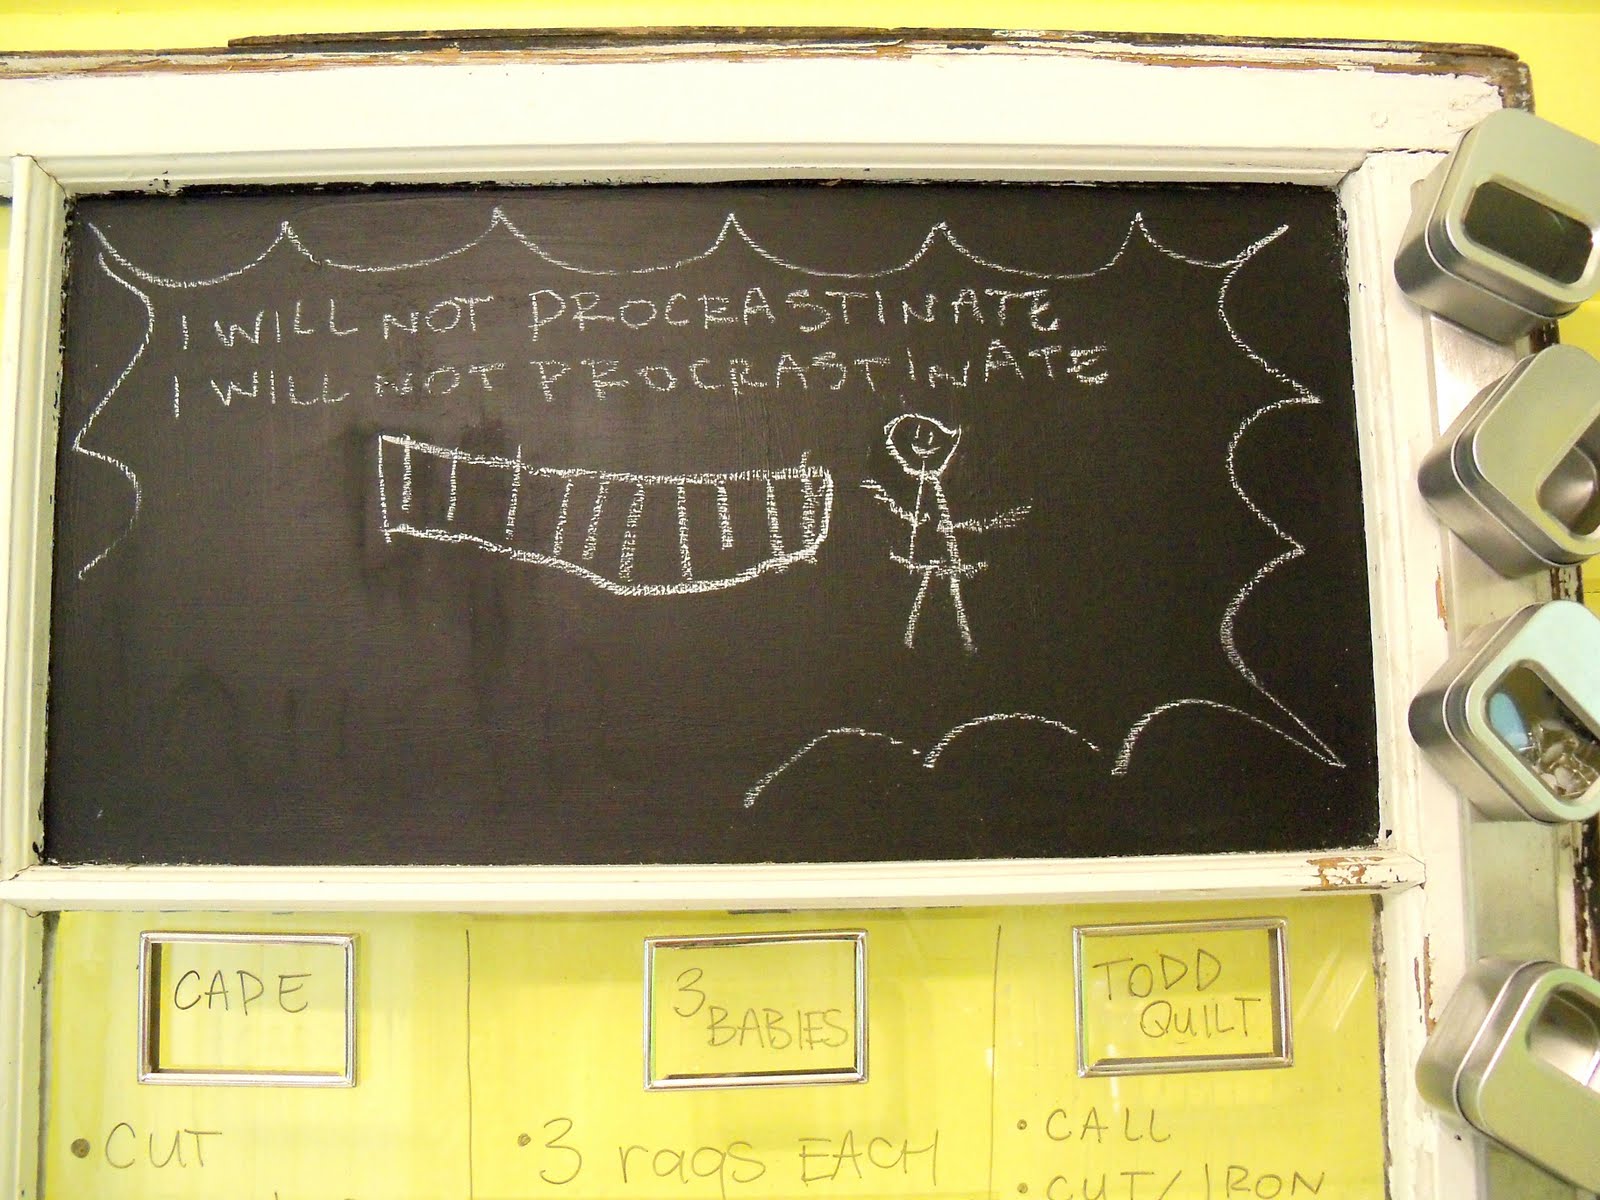 I WILL NOT PROCRASTINATE
I WILL NOT PROCRASTINATE
CAPE
3 BABIES
TODD
QUILT
• CUT
• 3 rags EACH
• CALL
• CUT/IRON